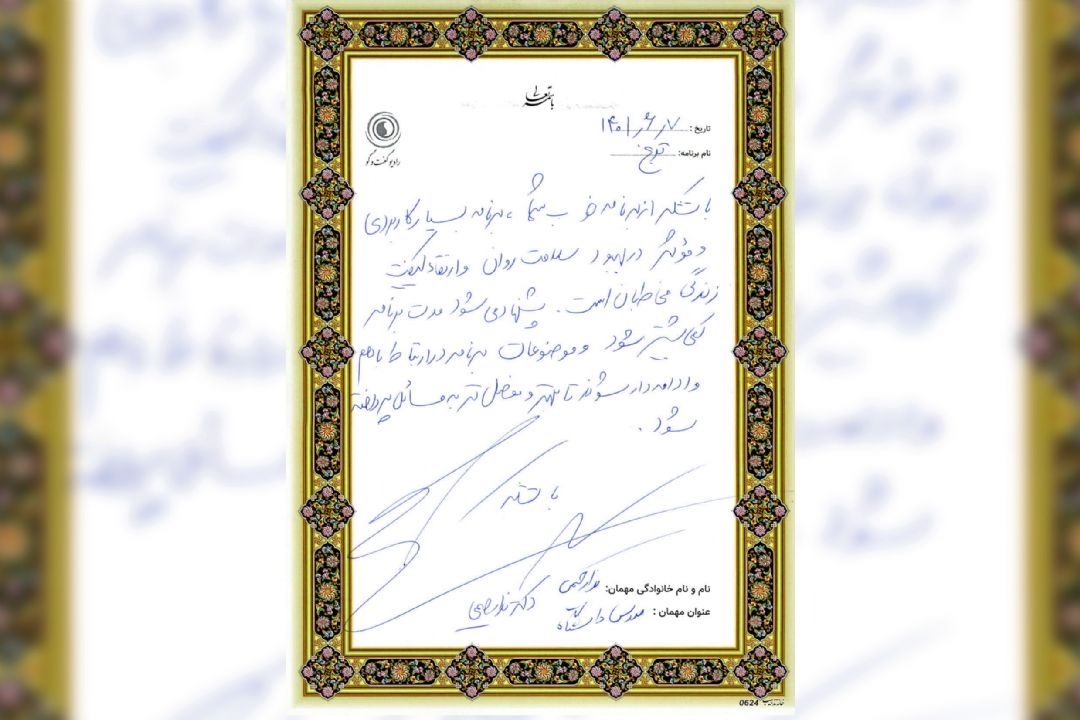 باسمه تعالی
رادیو گفت و گو
تاریخ: ۱۴۰۱/۶/۷
نام برنامه:
با تشکر از برنامه خوب شما، برنامه بسیار کاربردی
و مؤثر در بهبود سلامت روان و ارتقاء کیفیت
زندگی مخاطبان است. پیشنهاد می شود مدت برنامه
کمی بیشتر شود و موضوعات برنامه در ارتباط با هم
و ادامه دار شوند تا بهتر و مفصل تر به مسائل پرداخته
شود.
با تشکر
نام و نام خانوادگی مهمان:
عنوان مهمان: مدرس دانشگاه دکتر
0624